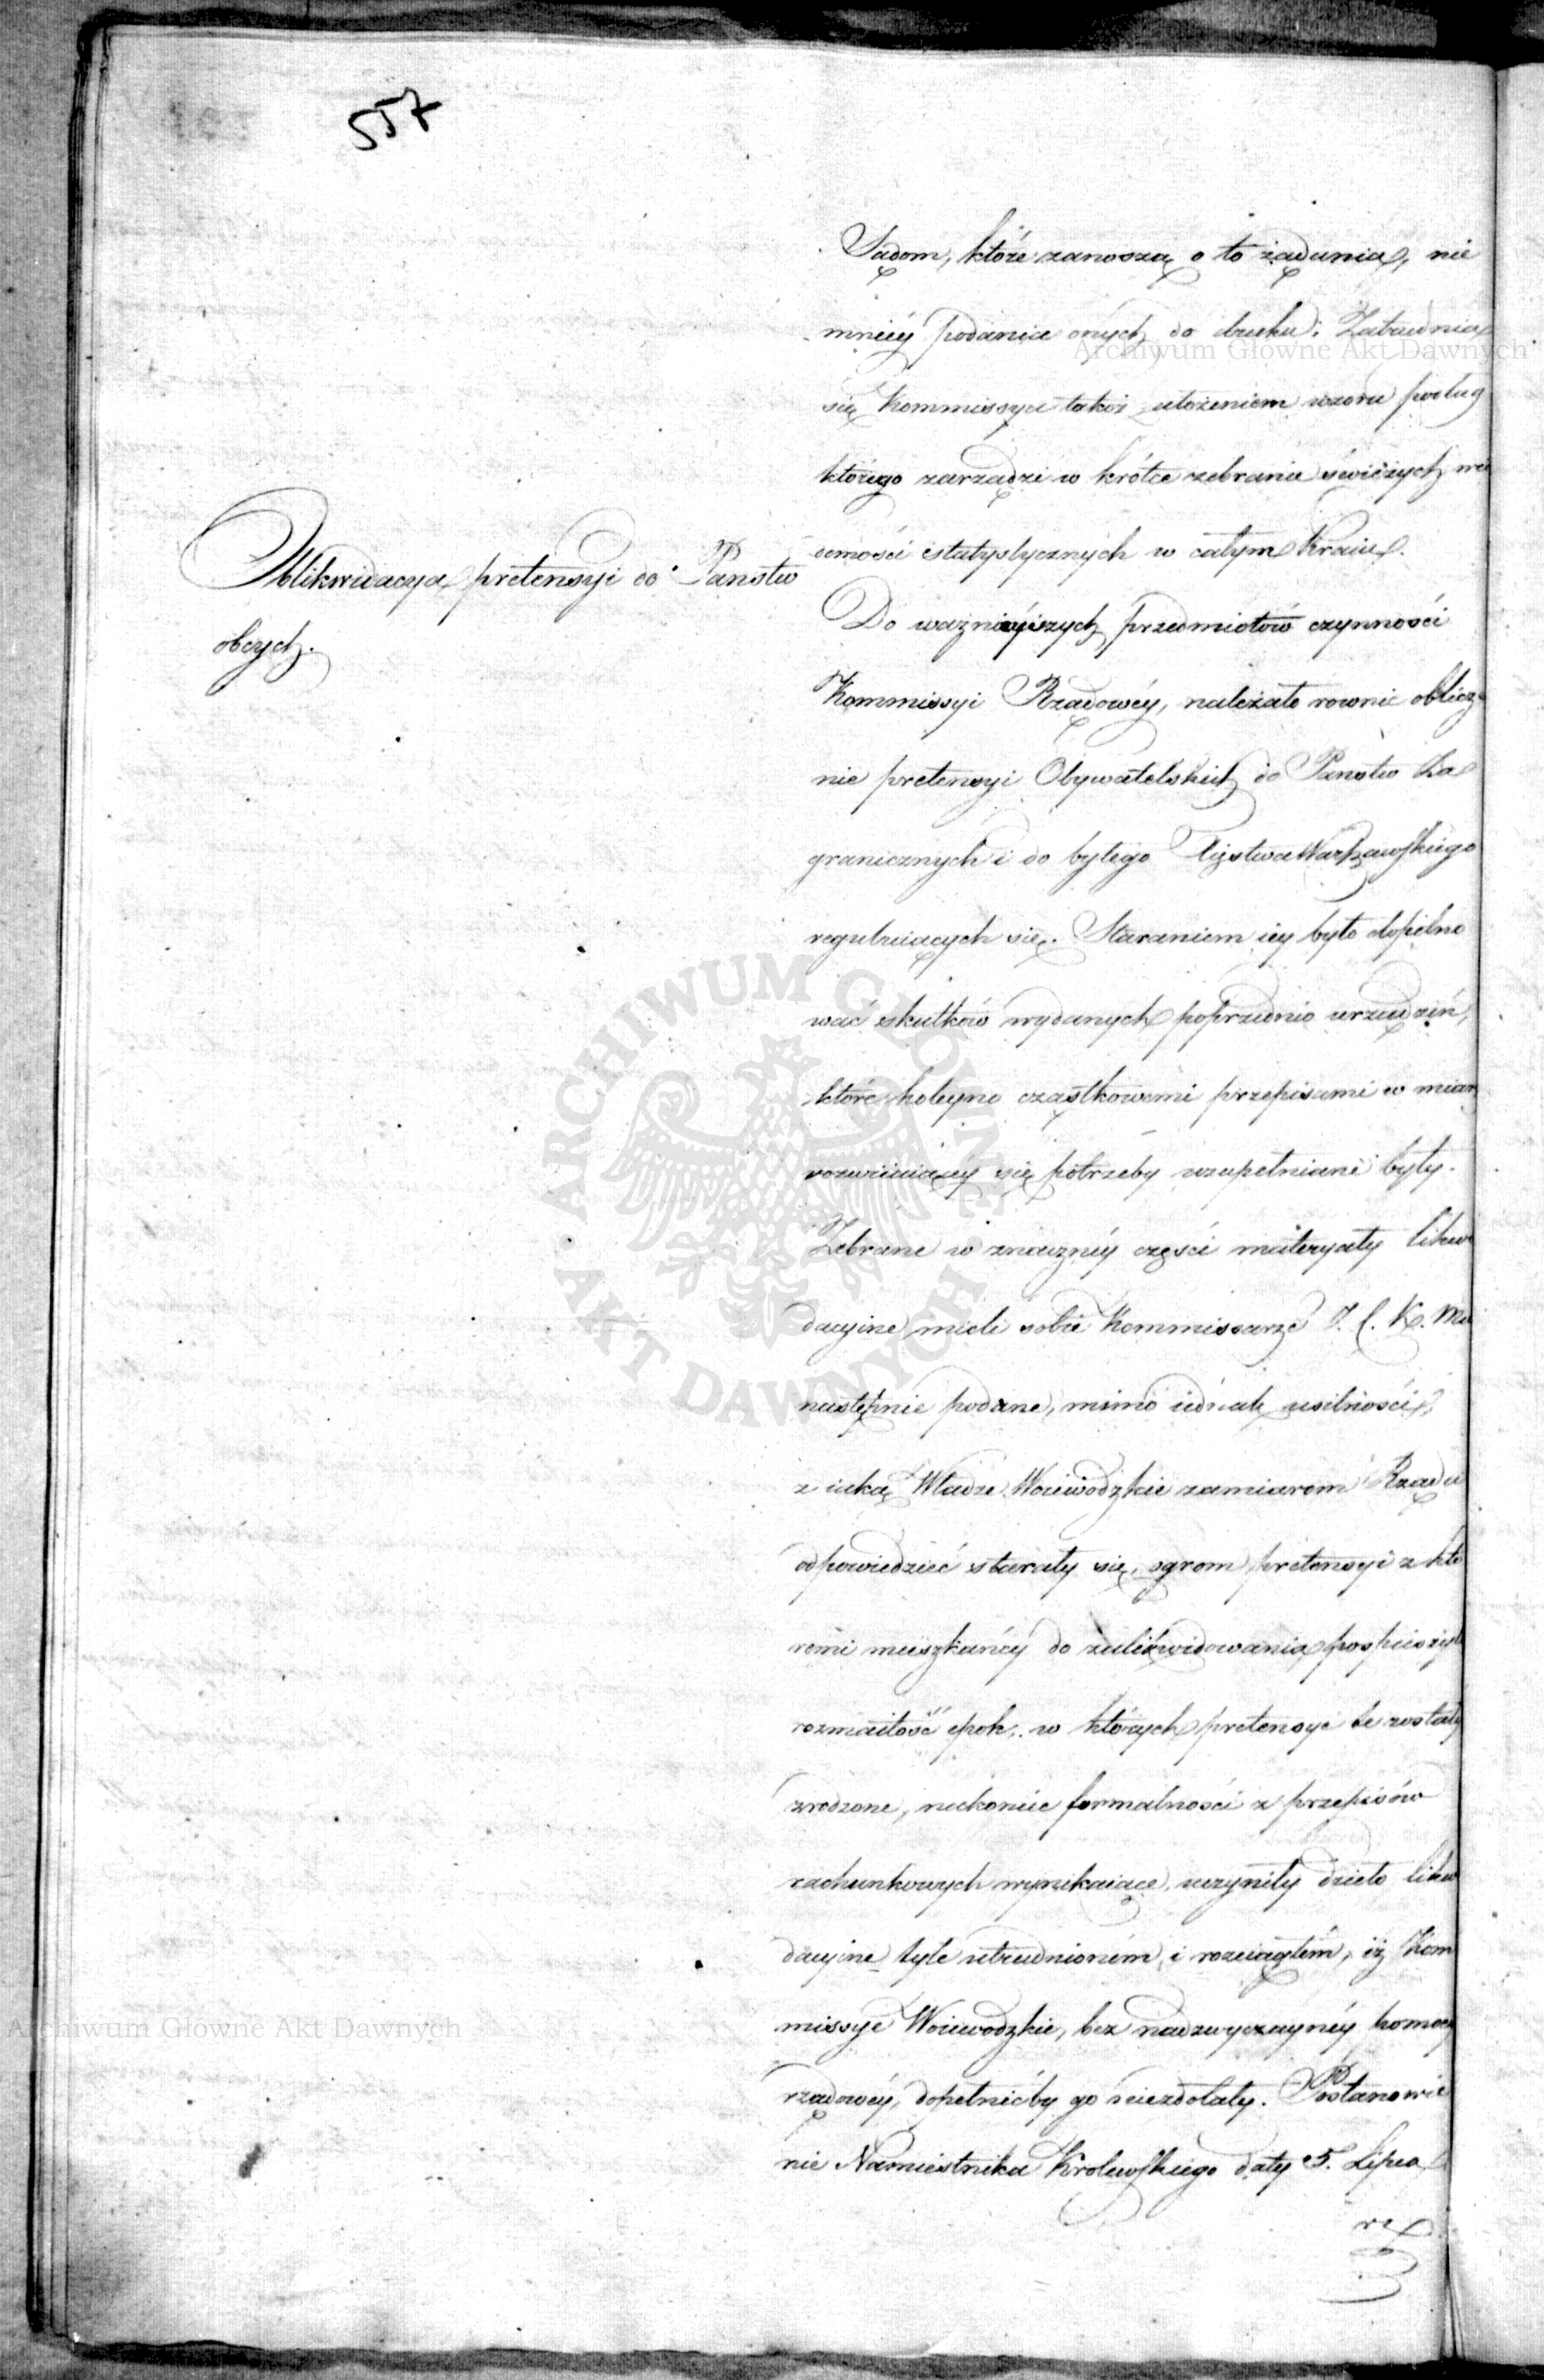 557
Sądom, które zanoszą o to żądania, nie
mniéy podania onych do druku. Zatrudnia
się Kommissya takoż ułożeniem wzoru podług
którego zarządzi w krótce zebranie świeżych wia
domości statystycznych w całym Kraiu.
Oblikwidacya pretensyi do Państw
obcych.
Do ważnieyszych przedmiotów czynności
Kommissyi Rządowéy, należało rownie oblicze
nie pretensyi Obywatelskich do Państw Za
granicznych i do byłego Xięstwa Warszawskiego
reguluiących się. Staraniem iey było dopilno
wać skutków wydanych poprzednio urządzeń,
które koleyno cząstkowemi przepisami w miarę
rozwiiaiącéy się potrzeby uzupełniane były.
Zebrane w znacznéy części materyały likwi
dacyine mieli sobie Kommissarze J. C. K. Mci
następnie podane, mimo iednak usilności,
z iaką Władze Woiewódzkie zamiarom Rządu
odpowiedzieć starały się, ogrom pretensyi z któ
remi mieszkańcy do zalikwidowania pospieszyli
rozmaitość epok, w których pretensye te zostały
zrodzone, niekonie formalności z przepisów
rachunkowych wynikaiące, uczyniły dzieło likwi
dacyine tyle utrudnioném i rozciągłém, iż Kom
missye Woiewodzkie, bez nadzwyczayney pomocy
rządowéy, dopełnićby go niezdołały. Postanowie
nie Namiestnika Krolewskiego daty 5. Lipca